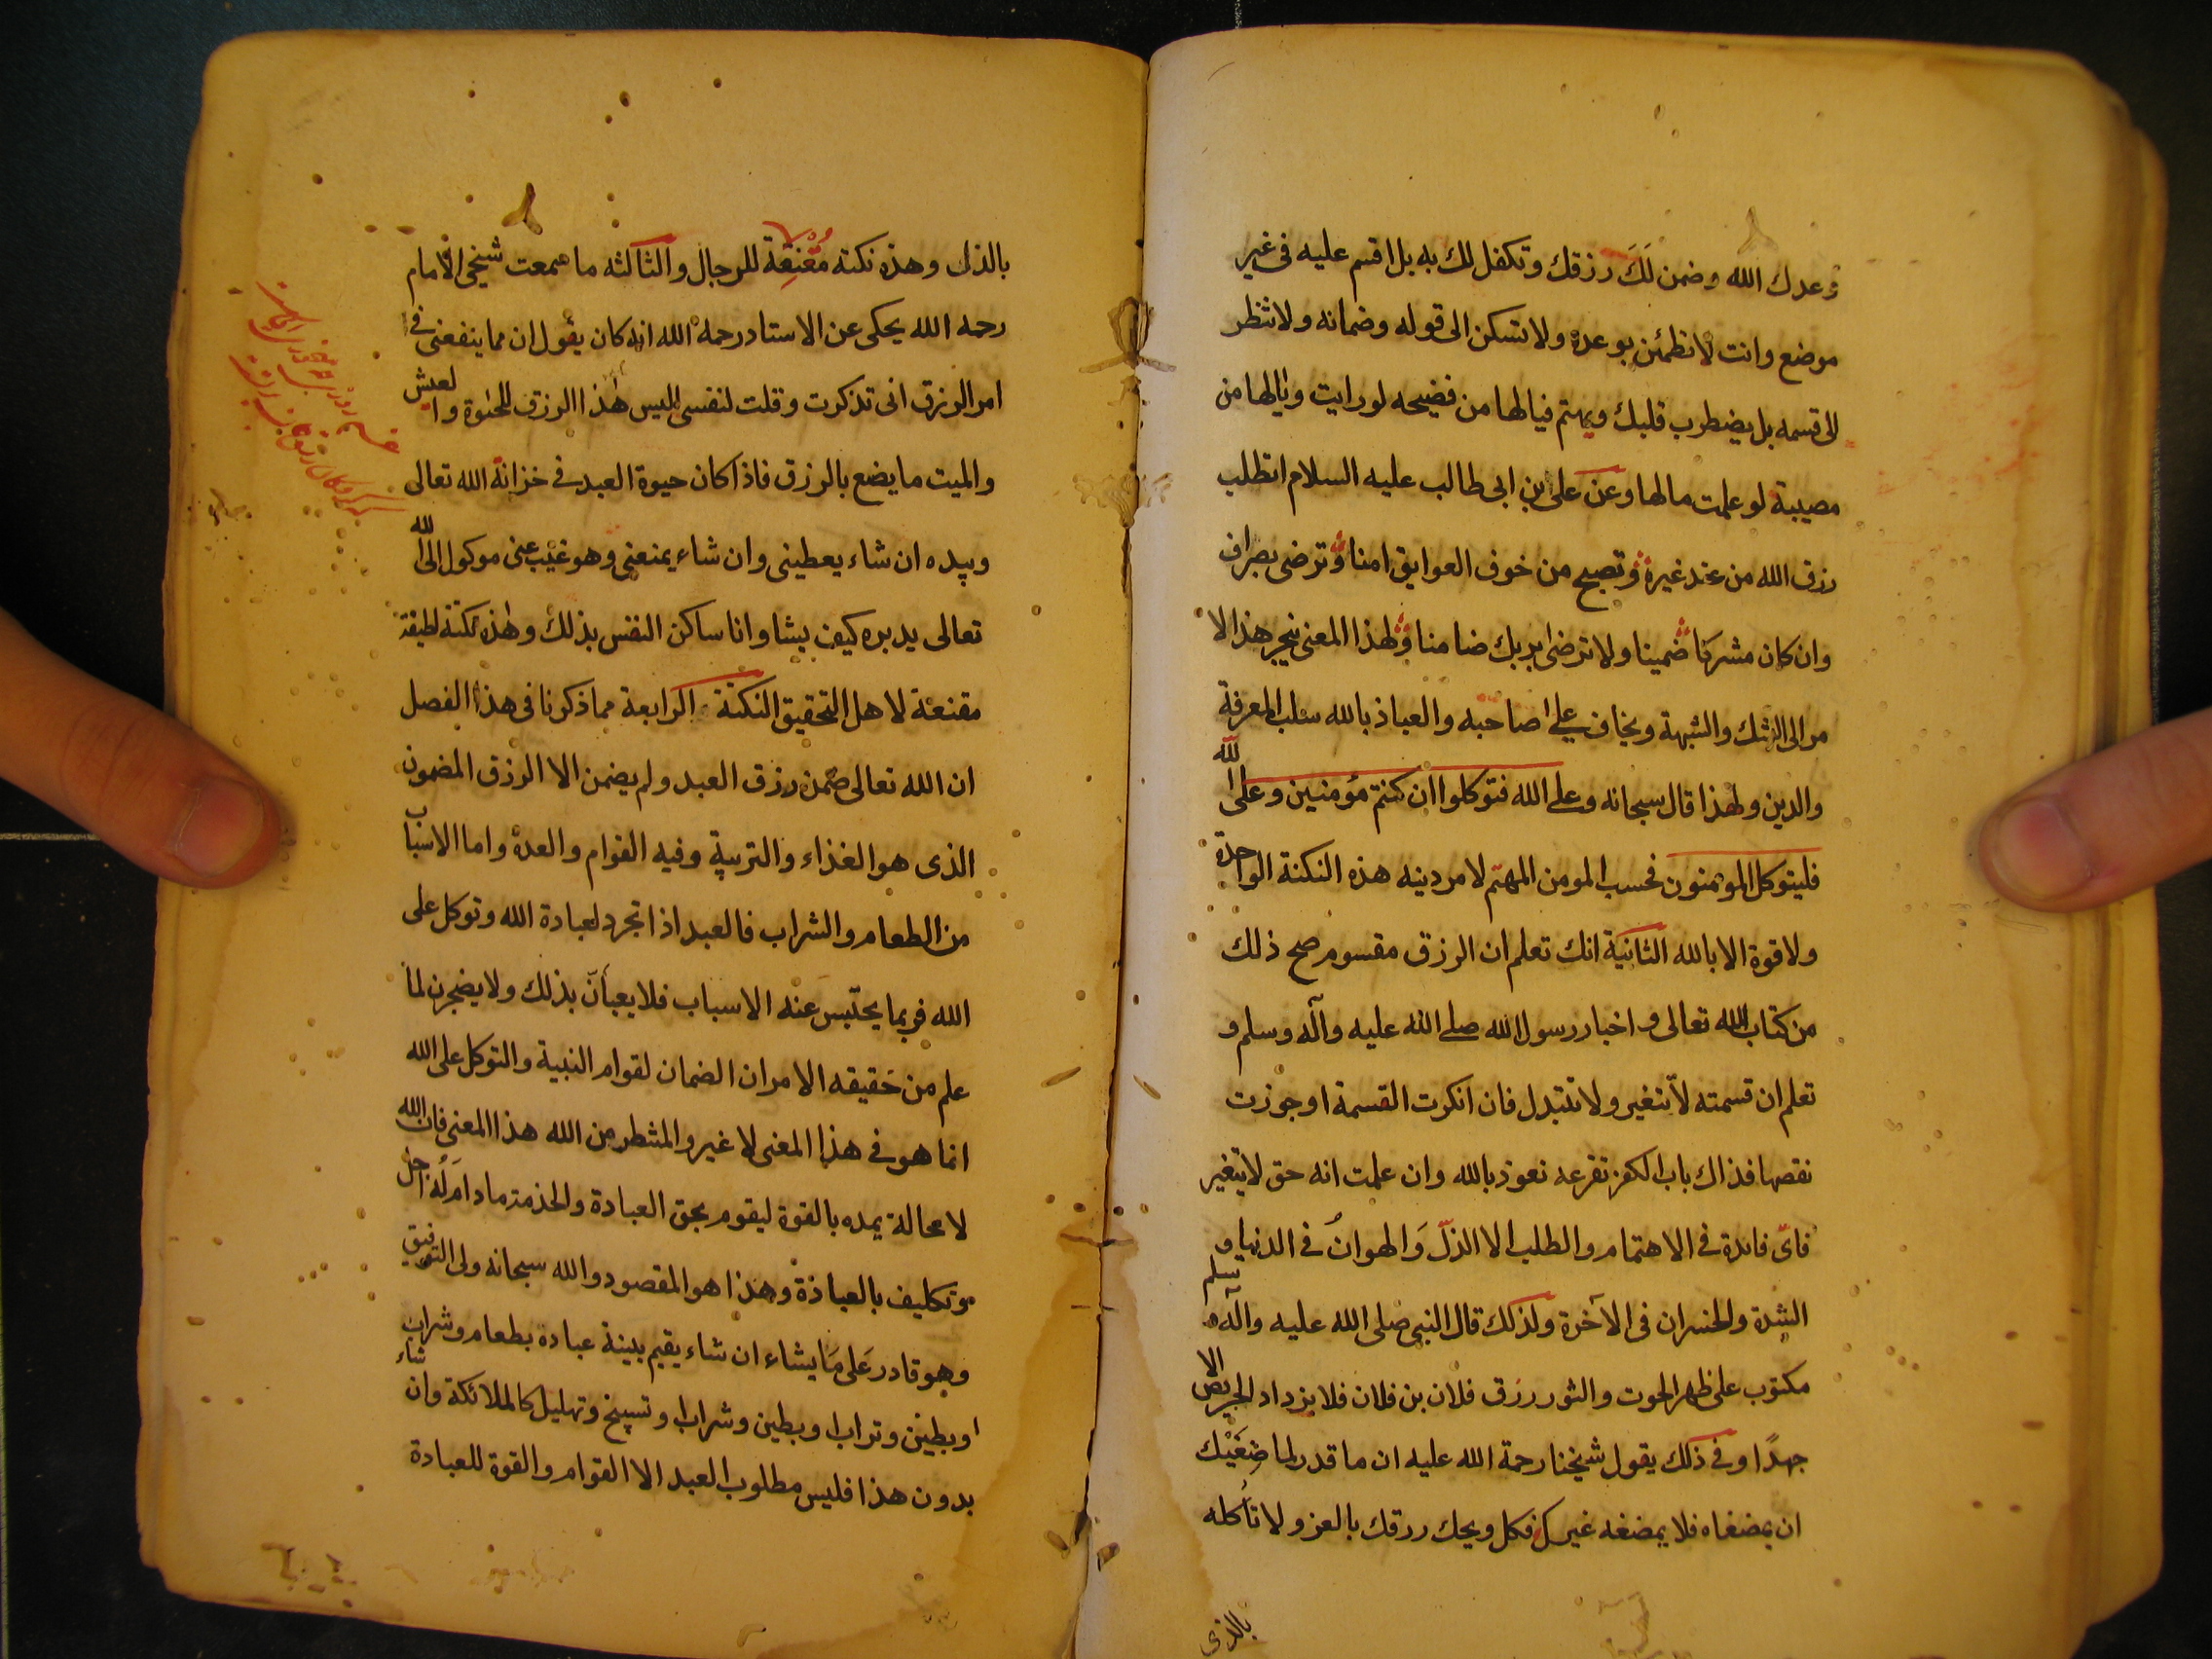 وعدك الله وضمن لَكَ رزقك وتكفل لك به بل اقسم عليه فى غير
موضع وانت لا تطمئن بوعده ولا تسكن الى قوله وضمانه ولا تنظر
الى قسمه بل يضطرب قلبك ويهتم فيالها من فضيحه لو رايت ويالها من
مصيبة لو علمت مالها وعن على بن ابى طالب عليه السلام اتطلب
رزق الله من عند غيره وتصبح من خوف العوايق امنا وترضى بصراف
وان كان مشركا ضمينا ولا ترضى بربك ضامنا ولهذا المعنى ينجر هذا الا
مر الى الشك والشبهة ويخاف على صاحبه والعياذ بالله سلب المعرفة
والدين ولهذا قال سبحانه وعلى الله فتوكلوا ان كنتم مؤمنين وعلى الله
فليتوكل المومنون فحسب المومن المهتم لامر دينه هذه النكتة الواحدة
ولا قوة الا بالله الثانية انك تعلم ان الرزق مقسوم صح ذلك
من كتاب الله تعالى و اخبار رسول الله صلى الله عليه وآله وسلم و
تعلم ان قسمته لا تتغير ولا تتبدل فان انكرت القسمة او جوزت
نقصها فذاك باب الكفر تقرعه نعوذ بالله وان علمت انه حق لا يتغير
فاىّ فائدة فى الاهتمام والطلب الا الذلّ وَالهوان فى الدنيا و
الشدة والخسران فى الآخرة ولذلك قال النبى صلى الله عليه وآله وسلم
مكتوب على ظهر الحوت والثور رزق فلان بن فلان فلا يزداد الحريص الا
جهدًا وفى ذلك يقول شيخنا رحمة الله عليه ان ما قدر لما ضغَيْك
ان يمضغاه فلا يمضغه غيرك فكل ويحك رزقك بالعز ولا تأكله
بالذى
بالذل وهذه نكته مُقْنِعَة للرجال والثالثه ما سمعت شيخى الامام
رحمه الله يحكى عن الاستاد رحمه الله انه كان يقول ان مما ينفعنى فى
امر الرزق انى تذكرت وقلت لنفسى اليس هذا الرزق للحيوة والعيش
والميت ما يضع بالرزق فاذا كان حيوة العبد فى خزانة الله تعالى
وبيده ان شاء يعطينى وان شاء يمنعنى وهو غيب عنى موكول الى الله
تعالى يدبره كيف يشا وانا ساكن النفس بذلك وهذه نكتة لطيفة
مقنعة لاهل التحقيق النكتة الرابعة مما ذكرنا فى هذا الفصل
ان الله تعالى ضمن رزق العبد ولم يضمن الا الرزق المضمون
الذى هو الغذاء والتربية وفيه القوام والعدة واما الاسباب
من الطعام والشراب فالعبد اذا تجرد لعبادة الله وتوكل على
الله فربما يحتبس عنه الاسباب فلا يعبأن بذلك ولا يضجرن لما
علم من حقيقه الامر ان الضمان لقوام البنية والتوكل على الله
انما هو فى هذا المعنى لا غير والمنتظر من الله هذا المعنى فان الله
لا محالة يمده بالقوة ليقوم بحق العبادة والخدمة مادام له اجل
وتكليف بالعبادة وهذا هو المقصود والله سبحانه ولى التوفيق
وهو قادر عَلى مَا يشاء ان شاء يقيم بنية عبادة بطعام وشراب
او بطين وتراب او بطين وشراب او تسبيح وتهليل كالملائكة وان شاء
بدون هذا فليس مطلوب العبد الا القوام والقوة للعبادة